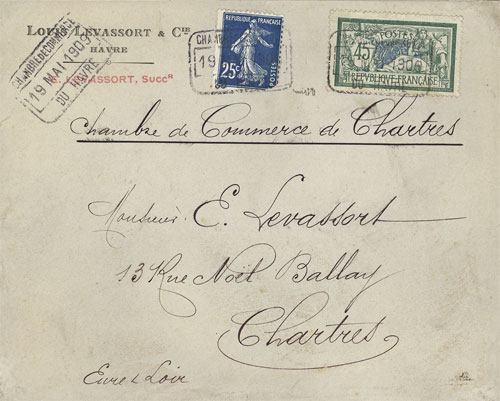 LOUIS LEVASSORT & Cie
HAVRE
LEVASSORT, SUCCR
CHAMBRE DE COMMERCE
19 MAI 1909
DU HAVRE
REPUBLIQUE FRANÇAISE
25c
POSTES
CHAMB
19
POSTES
45c
REPUBLIQUE FRANÇAISE
1909
Chambre de Commerce de Chartres
Monsieur E. Levassort
13 Rue Noël Ballay
Chartres
Eure & Loir